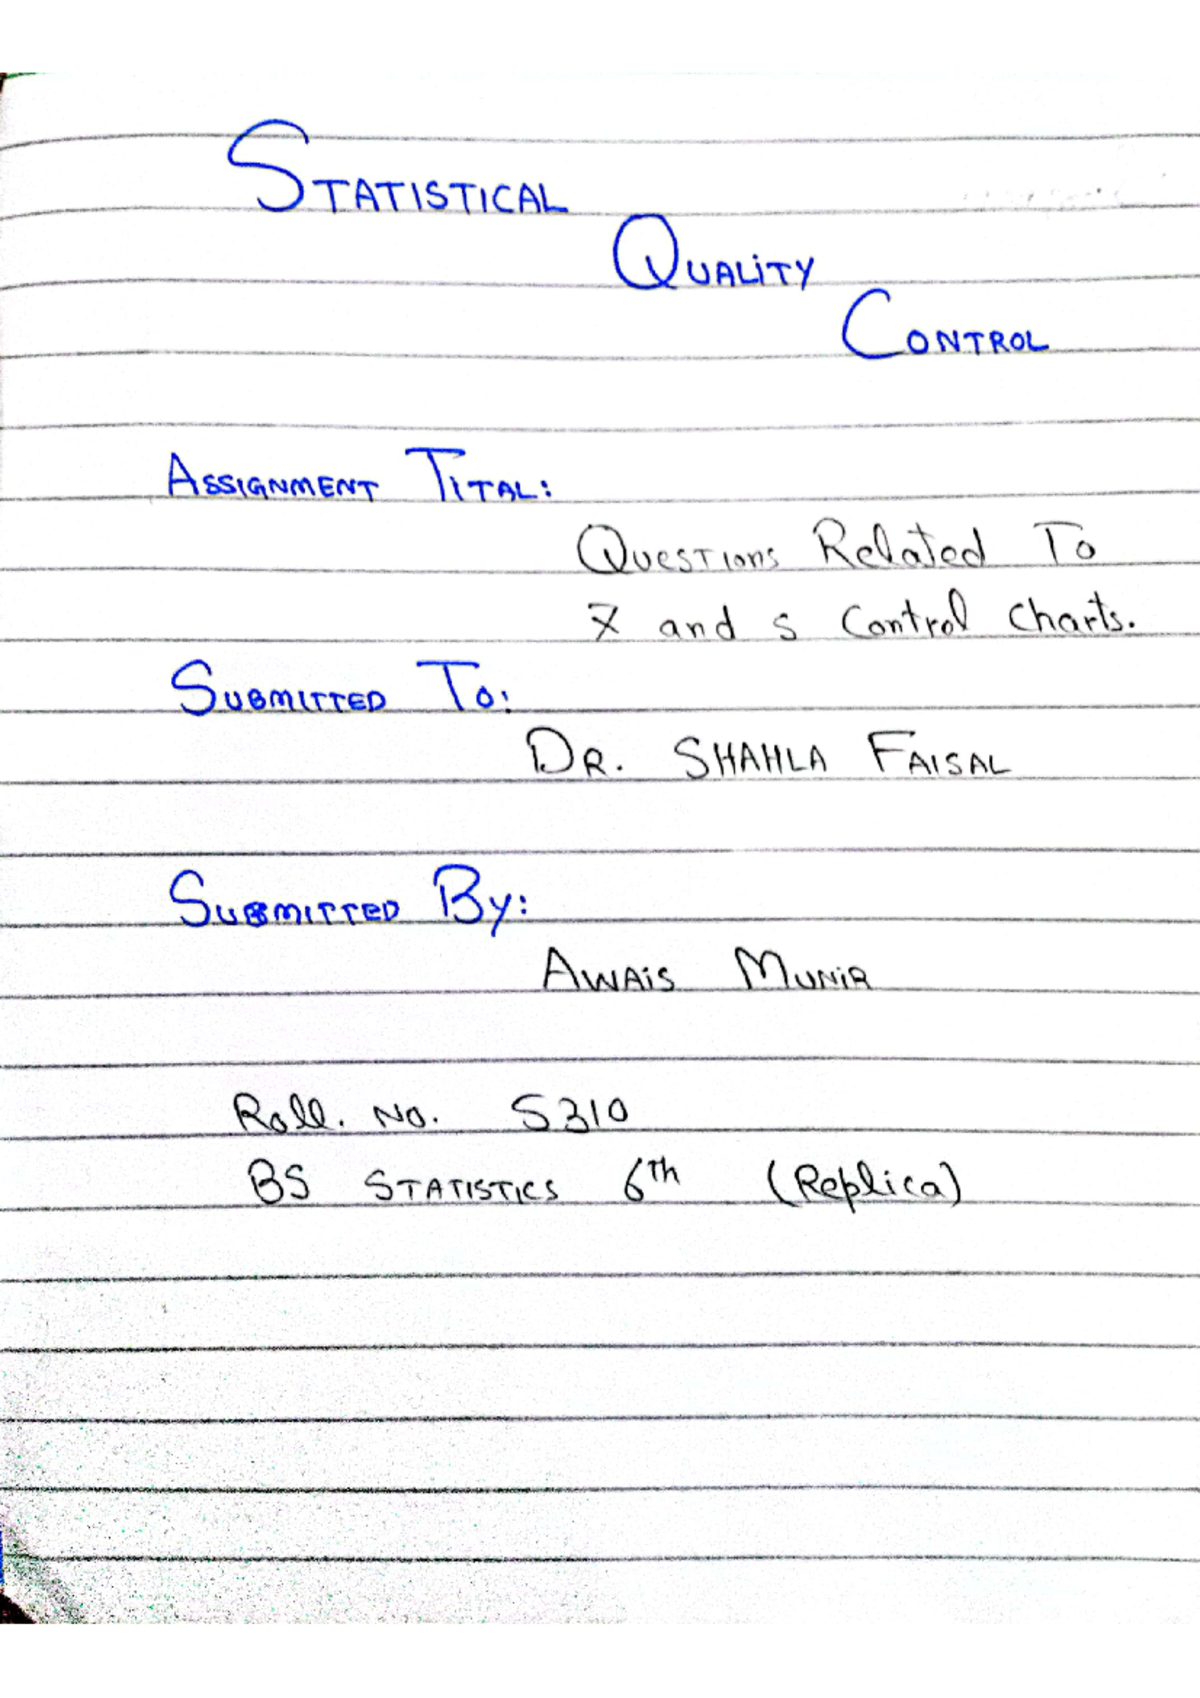 STATISTICAL
QUALITY
CONTROL
ASSIGNMENT TITAL:
QUESTIONS Related To
x̄ and s Control Charts.
SUBMITTED TO:
DR. SHAHLA FAISAL
SUBMITTED BY:
AWAIS MUNIR
Roll. No. 5310
BS STATISTICS 6th (Replica)